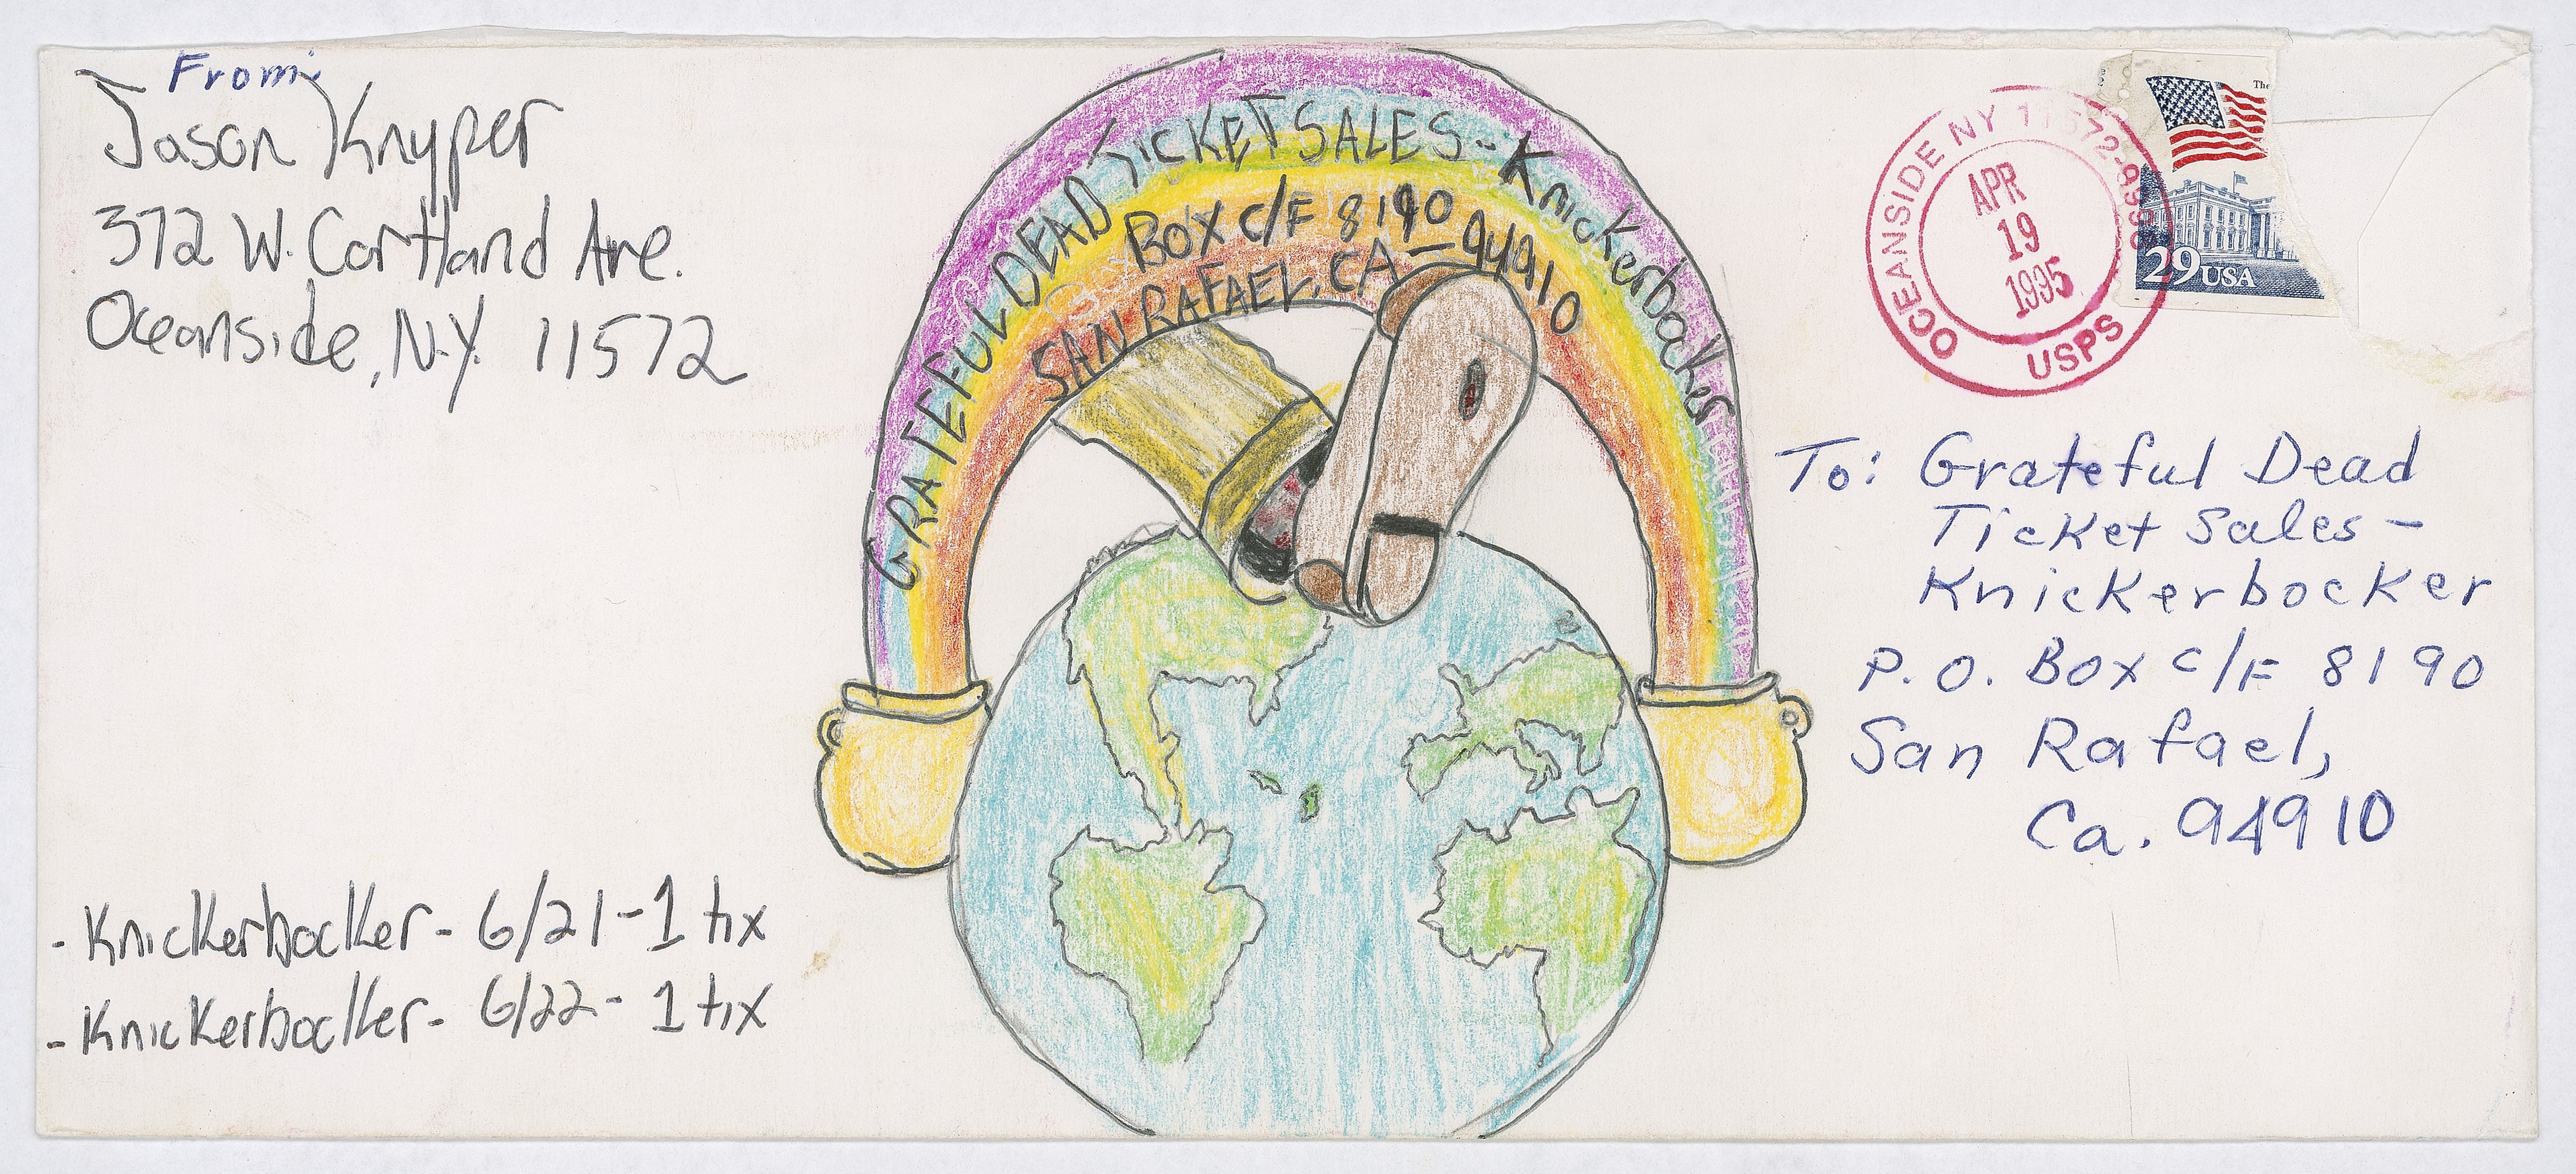 From:
Jason Knyper
372 W. Cortland Ave.
Oceanside, N.Y. 11572
GRATEFUL DEAD TICKET SALES - Knickerbocker
BOX C/F 8190
SAN RAFAEL, CA - 94910
OCEANSIDE NY 11572-9998
APR
19
1995
USPS
The
29 USA
To: Grateful Dead
Ticket Sales -
Knickerbocker
P.O. Box C/F 8190
San Rafael,
Ca. 94910
- Knickerbocker - 6/21 - 1 tix
- Knickerbocker - 6/22 - 1 tix